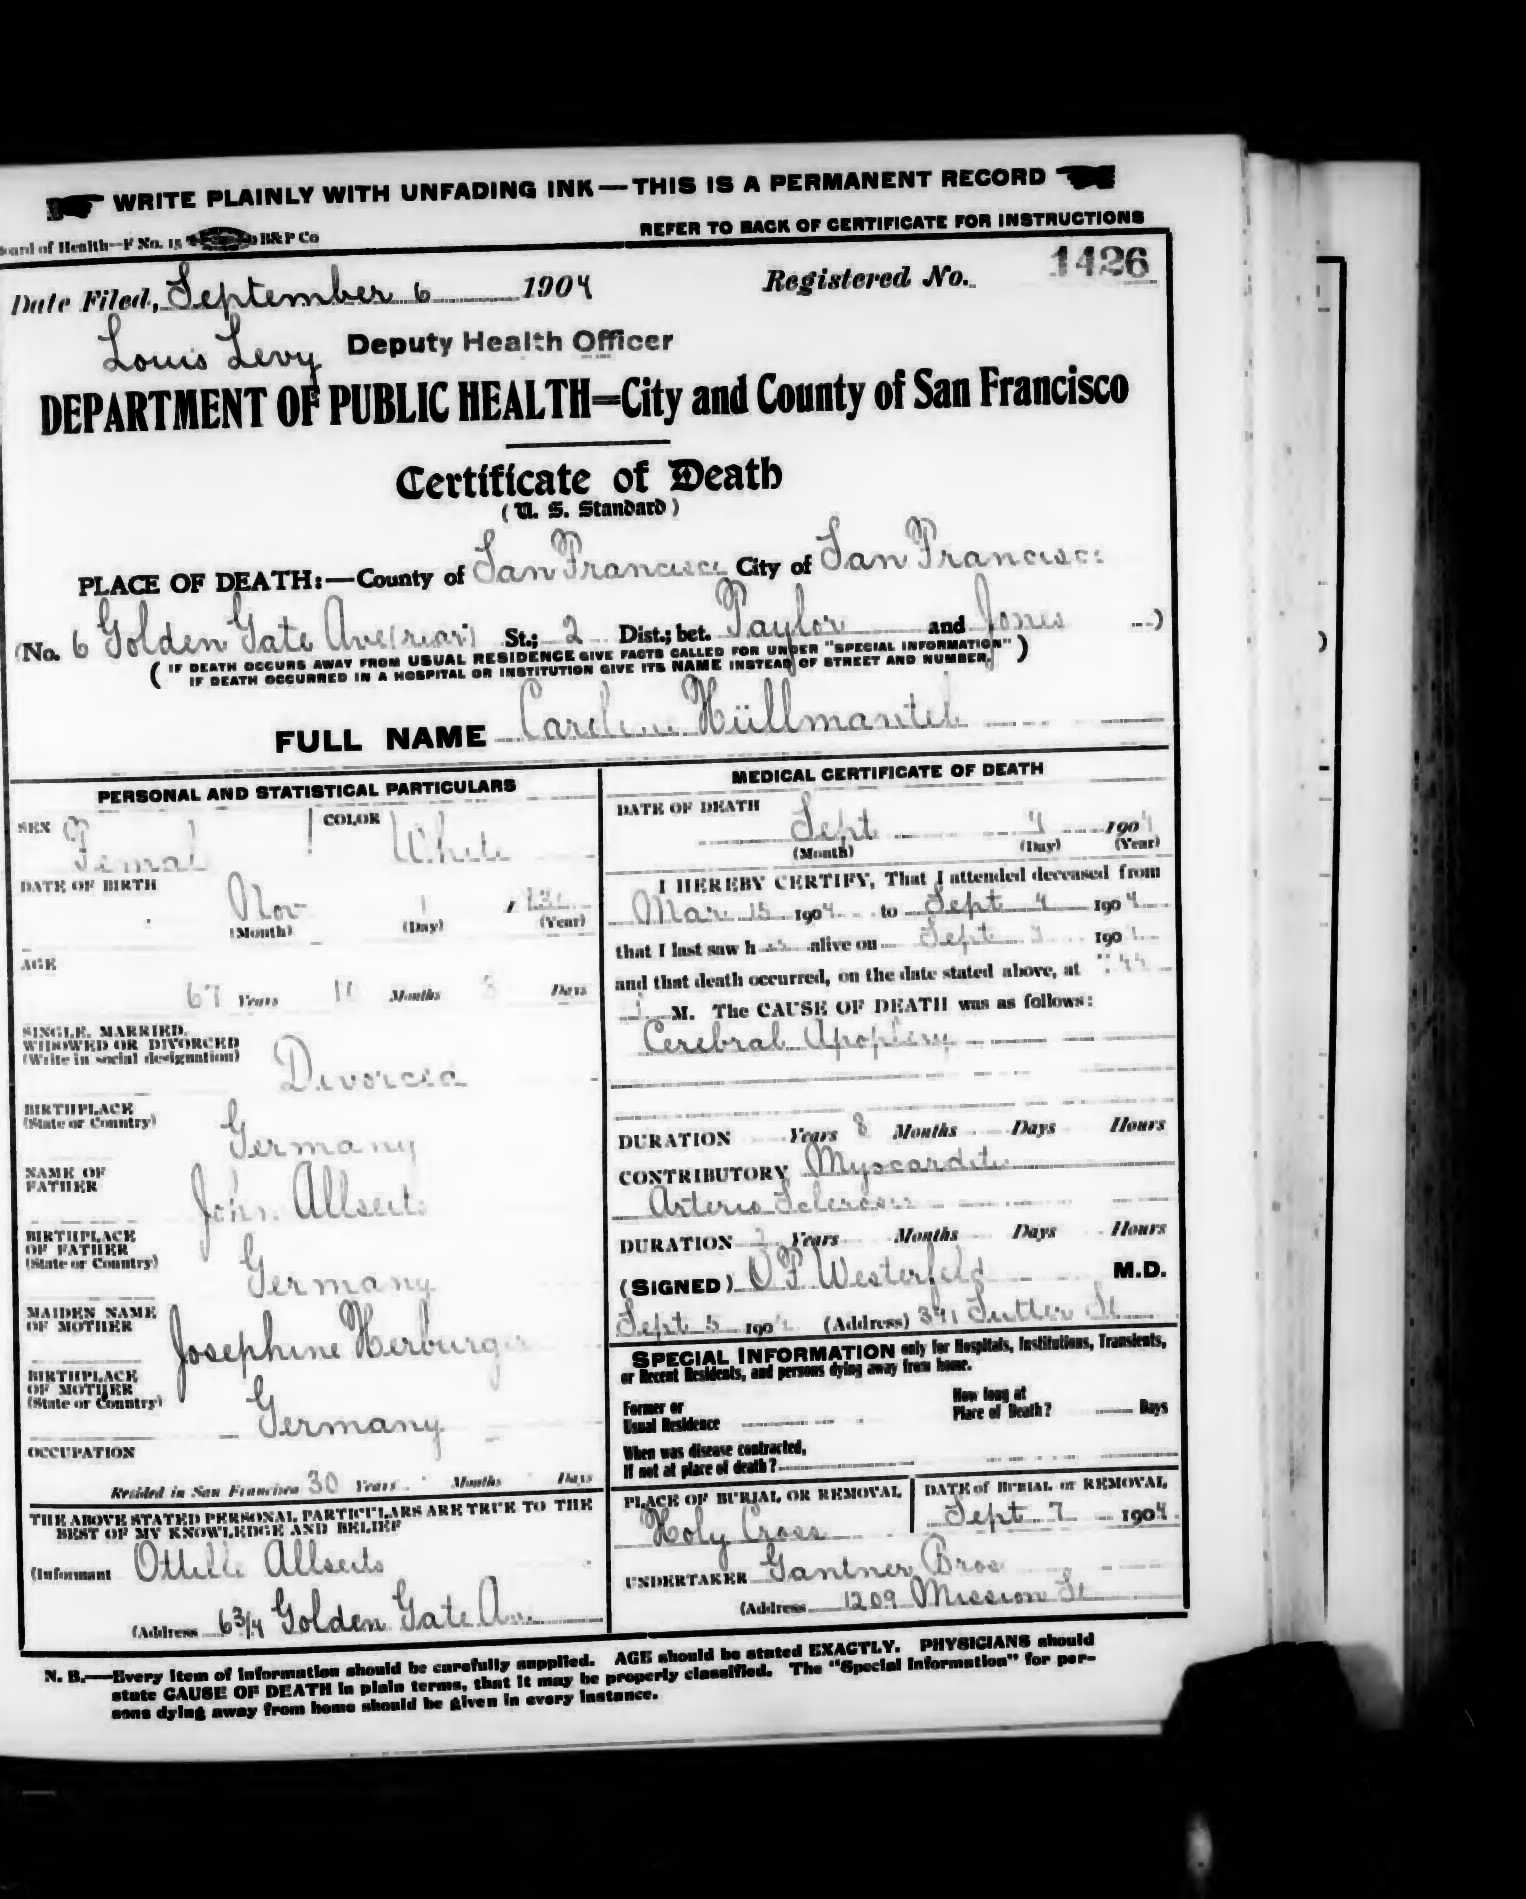 WRITE PLAINLY WITH UNFADING INK—THIS IS A PERMANENT RECORD
of Health—F No. 15 B&P Co
REFER TO BACK OF CERTIFICATE FOR INSTRUCTIONS
Date Filed, September 6 1904
Registered No. 1426
Louis Levy Deputy Health Officer
DEPARTMENT OF PUBLIC HEALTH=City and County of San Francisco
Certificate of Death
(U. S. Standard)
PLACE OF DEATH:—County of San Francisco City of San Francisco
(No. 6 Golden Gate Ave (rear) St.; 2 Dist.; bet. Taylor and Jones )
( IF DEATH OCCURS AWAY FROM USUAL RESIDENCE GIVE FACTS CALLED FOR UNDER "SPECIAL INFORMATION" )
IF DEATH OCCURRED IN A HOSPITAL OR INSTITUTION GIVE ITS NAME INSTEAD OF STREET AND NUMBER.
FULL NAME Caroline Hüllmantel
PERSONAL AND STATISTICAL PARTICULARS
SEX Femal
COLOR White
DATE OF BIRTH
Nov 1
(Month) (Day) (Year)
AGE
67 Years Months 3 Days
SINGLE, MARRIED,
WIDOWED OR DIVORCED
(Write in social designation)
Divorced
BIRTHPLACE
(State or Country)
Germany
NAME OF
FATHER
John
BIRTHPLACE
OF FATHER
(State or Country)
Germany
MAIDEN NAME
OF MOTHER
Josephine Herburger
BIRTHPLACE
OF MOTHER
(State or Country)
Germany
OCCUPATION
Resided in San Francisco 30 Years Months Days
THE ABOVE STATED PERSONAL PARTICULARS ARE TRUE TO THE
BEST OF MY KNOWLEDGE AND BELIEF
(Informant
(Address 6 3/4 Golden Gate Av.
MEDICAL CERTIFICATE OF DEATH
DATE OF DEATH
Sept 4 1904
(Month) (Day) (Year)
I HEREBY CERTIFY, That I attended deceased from
Mar 15 1904 to Sept 4 1904
that I last saw h alive on Sept 190
and that death occurred, on the date stated above, at
M. The CAUSE OF DEATH was as follows:
Cerebral Apoplexy
DURATION Years 8 Months Days Hours
CONTRIBUTORY Myocarditis
Arterio Sclerosis
DURATION Years Months Days Hours
(SIGNED) O F Westerfeld M.D.
Sept 5 190 (Address) Sutter St
SPECIAL INFORMATION only for Hospitals, Institutions, Transients,
or Recent Residents, and persons dying away from home.
Former or
Usual Residence
How long at
Place of Death? Days
When was disease contracted,
If not at place of death?
PLACE OF BURIAL OR REMOVAL
Holy Cross
DATE of BURIAL or REMOVAL
Sept 7 1904
UNDERTAKER Gantner Bros
(Address 1209 Mission St
N. B.—Every item of information should be carefully supplied. AGE should be stated EXACTLY. PHYSICIANS should
state CAUSE OF DEATH in plain terms, that it may be properly classified. The "Special Information" for per-
sons dying away from home should be given in every instance.